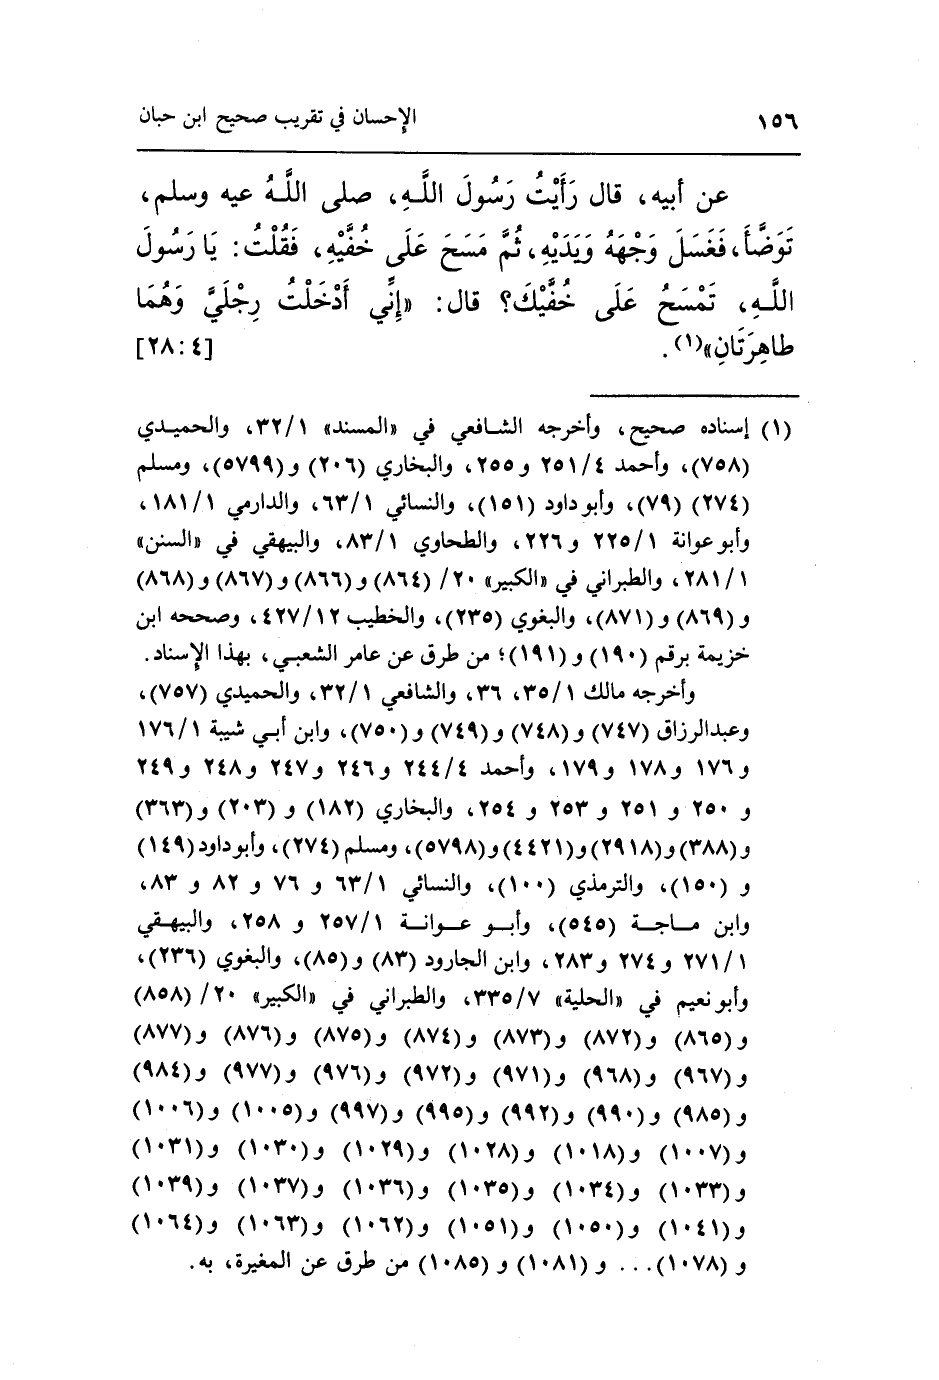 ١٥٦ الإحسان في تقريب صحيح ابن حبان
عن أبيه، قال رَأَيْتُ رَسُولَ اللَّهِ، صلى اللَّهُ عيه وسلم،
تَوَضَّأَ، فَغَسَلَ وَجْهَهُ وَيَدَيْهِ، ثُمَّ مَسَحَ عَلَى خُفَّيْهِ، فَقُلْتُ: يَا رَسُولَ
اللَّهِ، تَمْسَحُ عَلَى خُفَّيْكَ؟ قال: «إِنِّي أَدْخَلْتُ رِجْلَيَّ وَهُمَا
طاهِرَتَانِ»(١). [٤:٢٨]
(١) إسناده صحيح، وأخرجه الشافعي في «المسند» ٣٢/١، والحميدي
(٧٥٨)، وأحمد ٢٥١/٤ و٢٥٥، والبخاري (٢٠٦) و(٥٧٩٩)، ومسلم
(٢٧٤) (٧٩)، وأبو داود (١٥١)، والنسائي ٦٣/١، والدارمي ١٨١/١،
وأبو عوانة ٢٢٥/١ و٢٢٦، والطحاوي ٨٣/١، والبيهقي في «السنن»
٢٨١/١، والطبراني في «الكبير» ٢٠/ (٨٦٤) و(٨٦٦) و(٨٦٧) و(٨٦٨)
و(٨٦٩) و(٨٧١)، والبغوي (٢٣٥)، والخطيب ٤٢٧/١٢، وصححه ابن
خزيمة برقم (١٩٠) و(١٩١)؛ من طرق عن عامر الشعبي، بهذا الإسناد.
وأخرجه مالك ٣٥/١، ٣٦، والشافعي ٣٢/١، والحميدي (٧٥٧)،
وعبدالرزاق (٧٤٧) و(٧٤٨) و(٧٤٩) و(٧٥٠)، وابن أبي شيبة ١٧٦/١
و١٧٦ و١٧٨ و١٧٩، وأحمد ٢٤٤/٤ و٢٤٦ و٢٤٧ و٢٤٨ و٢٤٩
و ٢٥٠ و ٢٥١ و ٢٥٣ و ٢٥٤، والبخاري (١٨٢) و (٢٠٣) و(٣٦٣)
و(٣٨٨) و(٢٩١٨) و(٤٤٢١) و(٥٧٩٨)، ومسلم (٢٧٤)، وأبو داود (١٤٩)
و (١٥٠)، والترمذي (١٠٠)، والنسائي ٦٣/١ و ٧٦ و ٨٢ و ٨٣،
وابن ماجة (٥٤٥)، وأبو عوانة ٢٥٧/١ و ٢٥٨، والبيهقي
٢٧١/١ و٢٧٤ و٢٨٣، وابن الجارود (٨٣) و(٨٥)، والبغوي (٢٣٦)،
وأبو نعيم في «الحلية» ٣٣٥/٧، والطبراني في «الكبير» ٢٠/ (٨٥٨)
و(٨٦٥) و(٨٧٢) و(٨٧٣) و(٨٧٤) و(٨٧٥) و(٨٧٦) و(٨٧٧)
و(٩٦٧) و(٩٦٨) و(٩٧١) و(٩٧٢) و(٩٧٦) و(٩٧٧) و(٩٨٤)
و(٩٨٥) و(٩٩٠) و(٩٩٢) و(٩٩٥) و(٩٩٧) و(١٠٠٥) و(١٠٠٦)
و(١٠٠٧) و(١٠١٨) و(١٠٢٨) و(١٠٢٩) و(١٠٣٠) و(١٠٣١)
و(١٠٣٣) و(١٠٣٤) و(١٠٣٥) و(١٠٣٦) و(١٠٣٧) و(١٠٣٩)
و(١٠٤١) و(١٠٥٠) و(١٠٥١) و(١٠٦٢) و(١٠٦٣) و(١٠٦٤)
و (١٠٧٨)... و (١٠٨١) و (١٠٨٥) من طرق عن المغيرة، به.